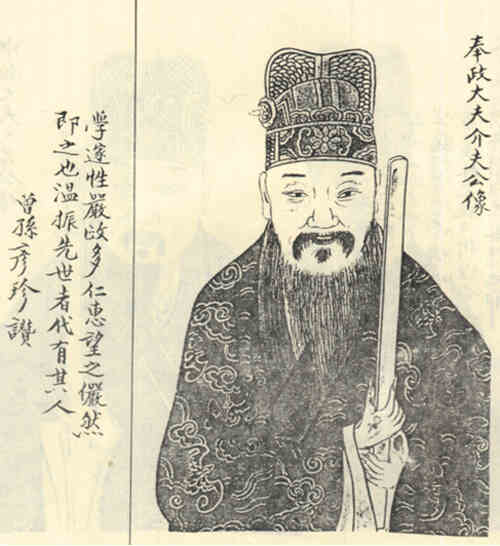 奉政大夫介夫公像
學邃性嚴政多仁惠望之儼然
即之也溫振先世者代有其人
曾孫彥珍讚